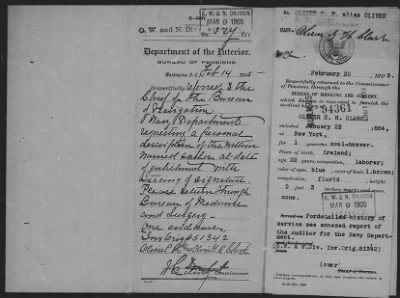 O. W. and N. Div.
O. W. & N. DIVISION
MAR 9 1905
Department of the Interior,
BUREAU OF PENSIONS
Washington, D.C. Feb 14 1905
Respectfully
Chief of the Bureau
of Navigation
Navy Department
requesting a personal
description of the within
named sailor at date
of enlistment with
tracing of signature.
Please return through
Bureau of Medicine
and Surgery.
One enclosure.
Inv Orig 51342
Commissioner.
alias OLIVER
February 20 1905.
Respectfully returned to the Commissioner
of Pensions, through the
BUREAU OF MEDICINE AND SURGERY,
94361
OLIVER H. CLARK
enlisted January 22 1864,
at New York,
for 1 years as coal-heaver.
Place of birth, Ireland;
age 22 years; occupation, laborer;
color of eyes, blue color of hair, l.brown;
complexion, florid
5 feet 3
none.
O. W. & N. DIVISION
MAR 9 1905
For detailed history of
service see annexed report of
the auditor for the Navy Depart-
ment.
(O.W. & N.Div. Inv.Orig.51342)
(over)